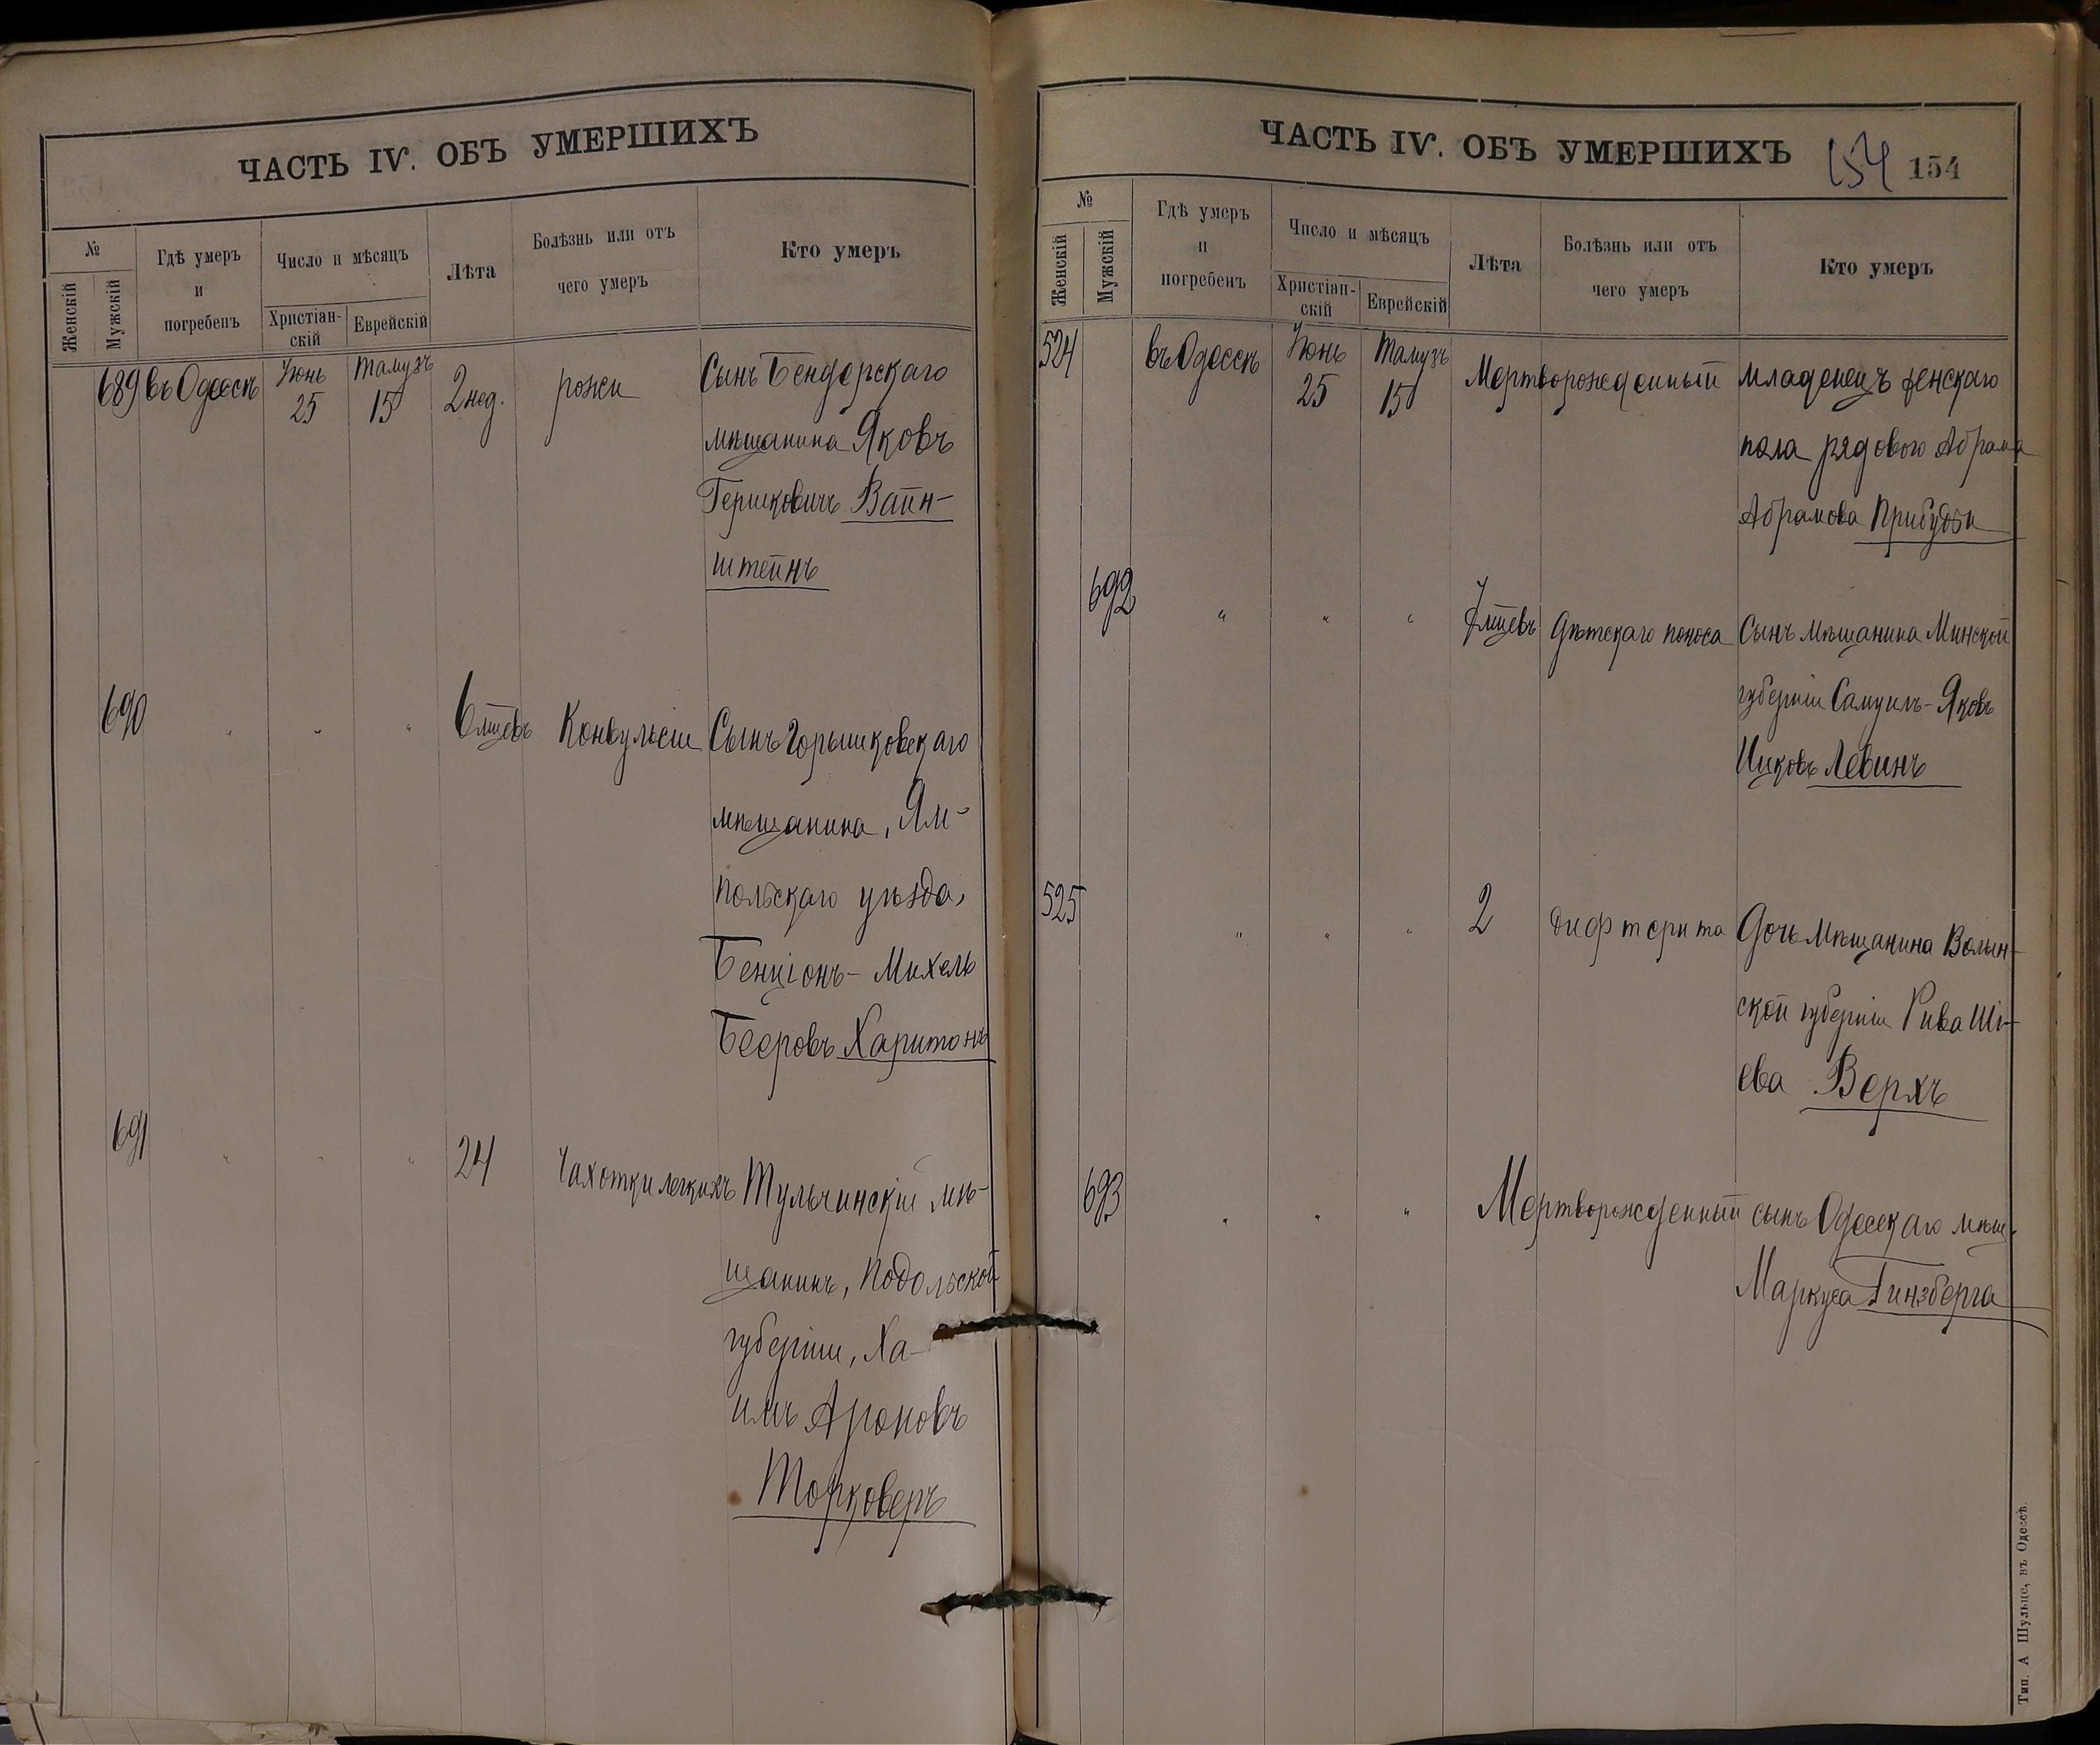 ЧАСТЬ IV. ОБЪ УМЕРШИХЪ
№
Женскій
Мужскій
Гдѣ умеръ
и
погребенъ
Число и мѣсяцъ
Христіан-
скій
Еврейскій
Лѣта
Болѣзнь или отъ
чего умеръ
Кто умеръ
689 въ Одессѣ Іюнь 25 Тамузъ 15 2 нед. рожи Сынъ Бендерскаго
мѣщанина Яковъ
Гершковичъ Вайн-
штейнъ
690 " " " 6 мѣцевъ Конвульсіи Сынъ Горышковскаго
мѣщанина, Ям-
польскаго уѣзда,
Бенціонъ-Михель
Бееровъ Харитонъ
691 " " " 24 Чахотки легкихъ Тульчинскій мѣ-
щанинъ, Подольской
губерніи, Ха-
имъ Ароновъ
Торковеръ
ЧАСТЬ IV. ОБЪ УМЕРШИХЪ
154 154
№
Женскій
Мужскій
Гдѣ умеръ
и
погребенъ
Число и мѣсяцъ
Христіан-
скій
Еврейскій
Лѣта
Болѣзнь или отъ
чего умеръ
Кто умеръ
524 въ Одессѣ Іюнь 25 Тамузъ 15 Мертворожденный младенецъ женскаго
пола рядового Абрама
Абрамова
692 " " " 7 мѣцевъ дѣтскаго поноса Сынъ мѣщанина Минской
губерніи Самуилъ-Яковъ
Ицковъ Левинъ
525 " " " 2 дифтерита Дочь мѣщанина Волын-
ской губерніи Рива Ші-
ева Верхъ
693 " " " Мертворожденный сынъ Одесскаго мѣщ.
Маркуса Гинзберга
Тип. А Шульце, въ Одессѣ.